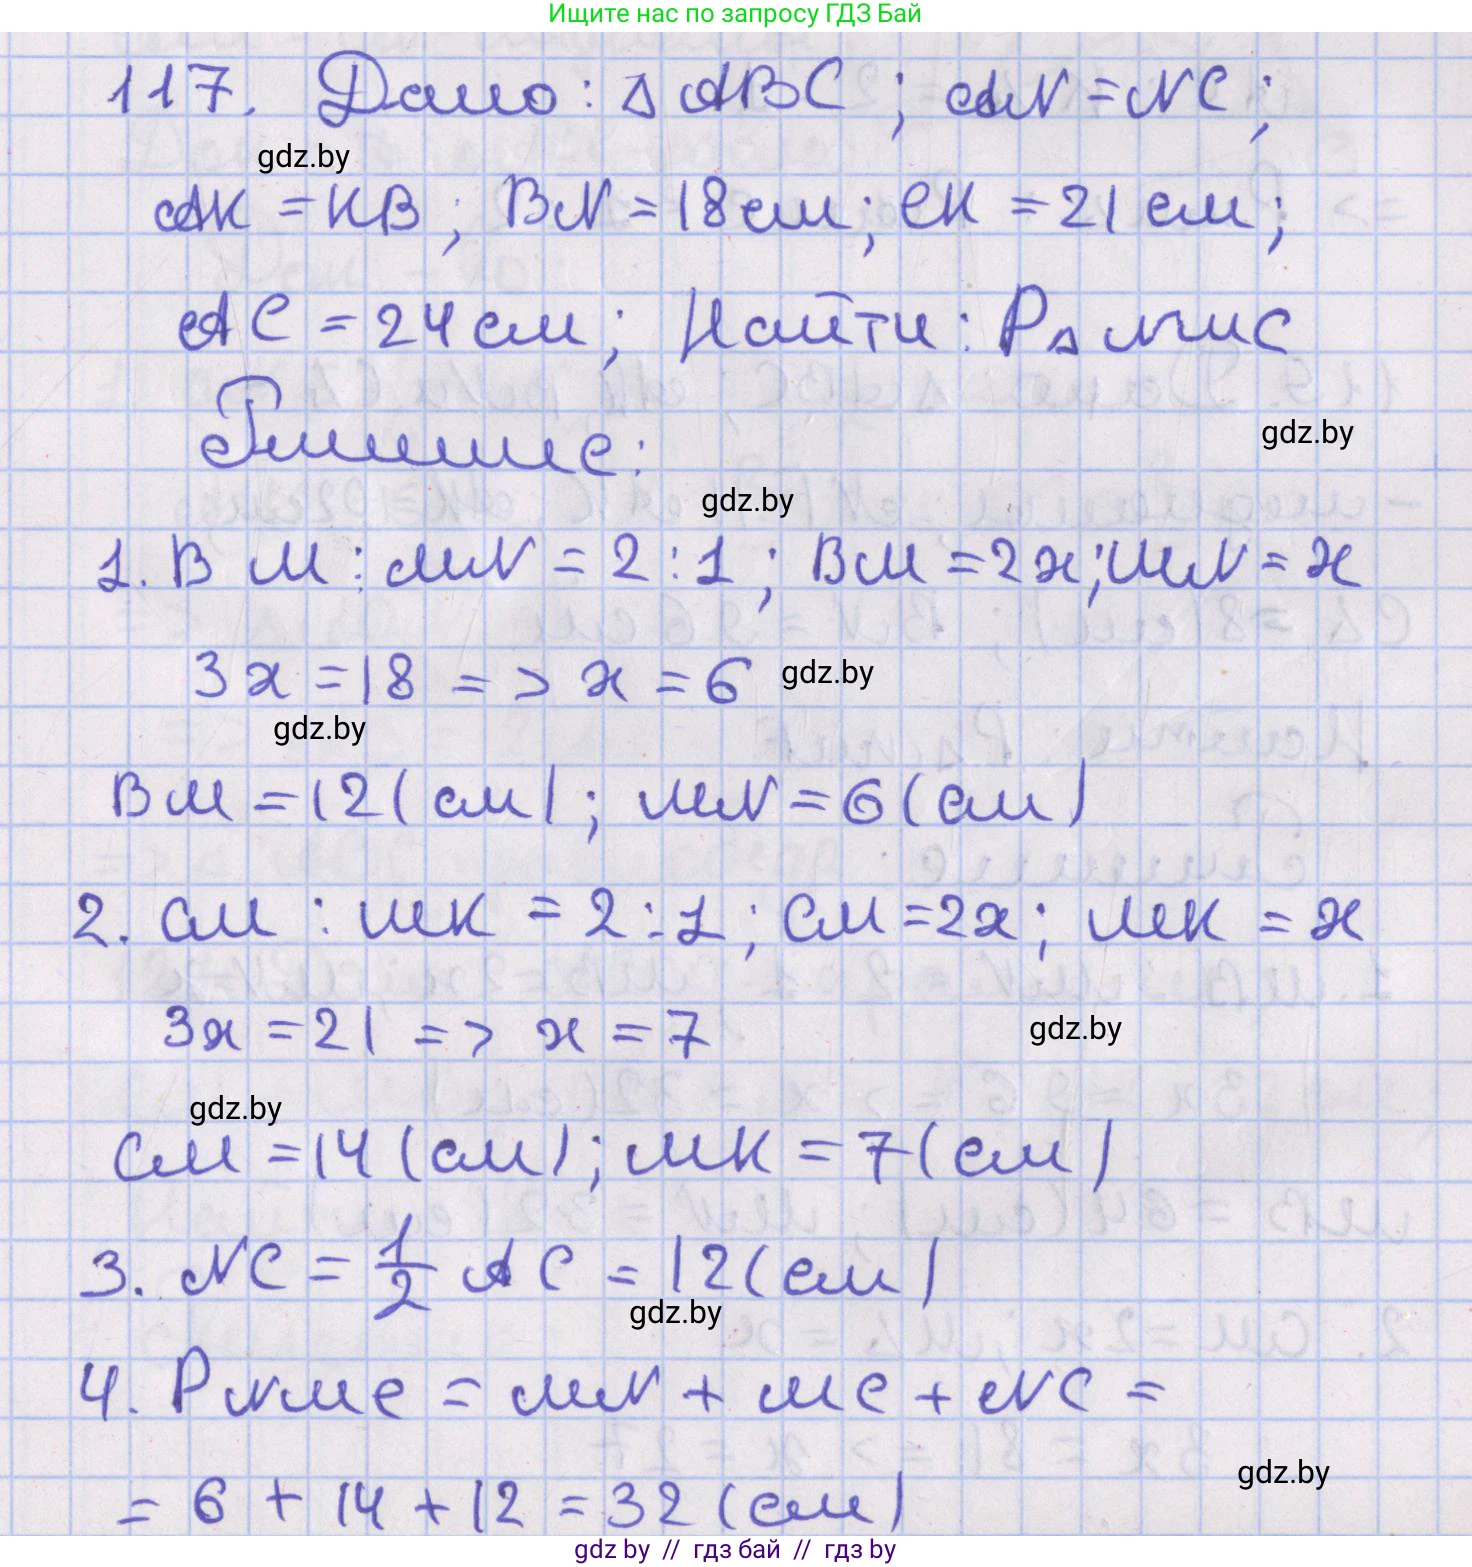 Ищите нас по запросу ГДЗ Бай
117. Дано: △ ABC; AN = NC;
gdz.by
AK = KB; BN = 18 см; CK = 21 см;
AC = 24 см; Найти: P△ NMC
gdz.by
Решение:
gdz.by
1. BM : MN = 2 : 1; BM = 2x; MN = x
3x = 18 => x = 6
gdz.by
gdz.by
BM = 12 (см); MN = 6 (см)
2. CM : MK = 2 : 1; CM = 2x; MK = x
3x = 21 => x = 7
gdz.by
gdz.by
CM = 14 (см); MK = 7 (см)
3. NC = 1/2 AC = 12 (см)
gdz.by
4. PNMC = MN + MC + NC =
gdz.by
= 6 + 14 + 12 = 32 (см)
gdz by // гдз бай // гдз by